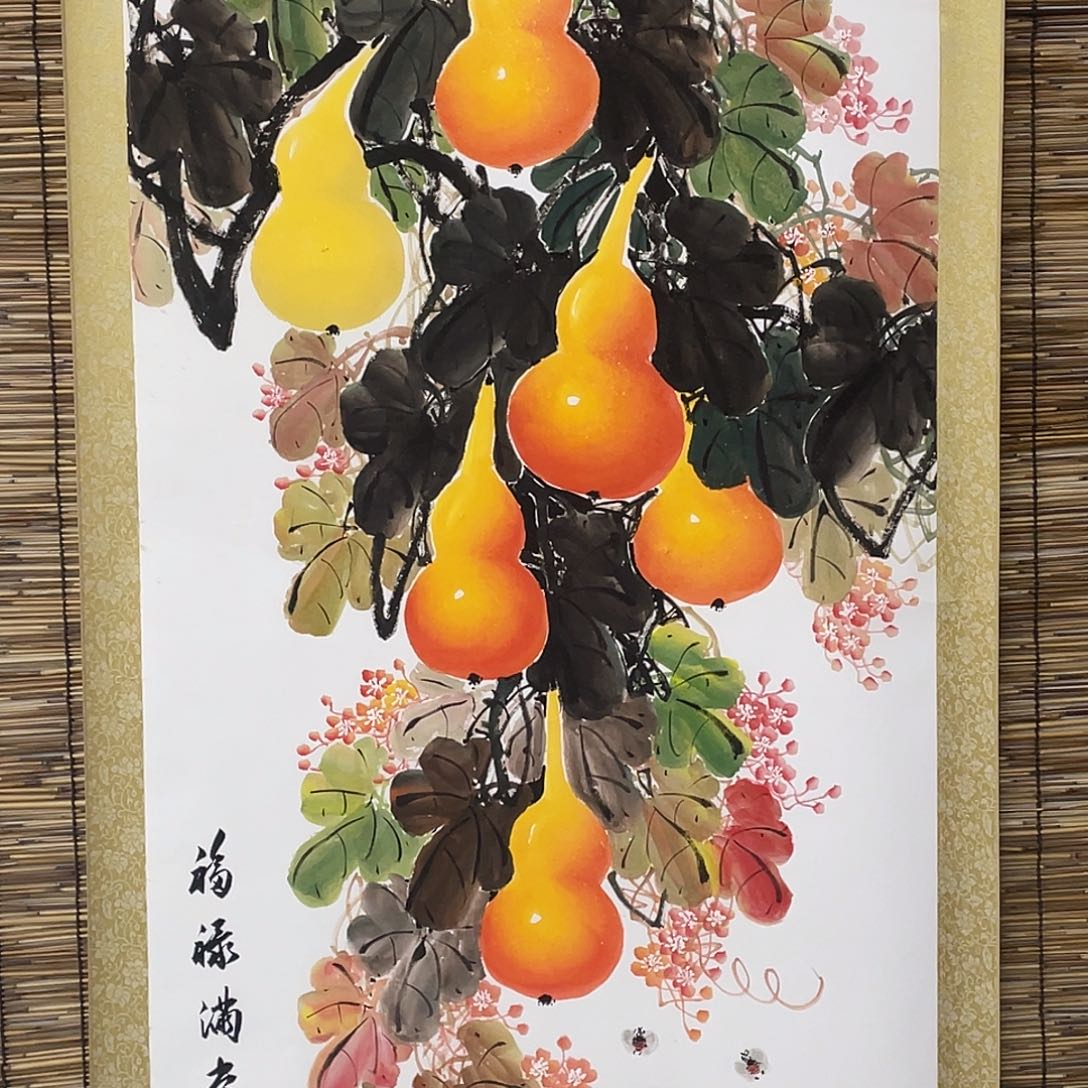 福禄满